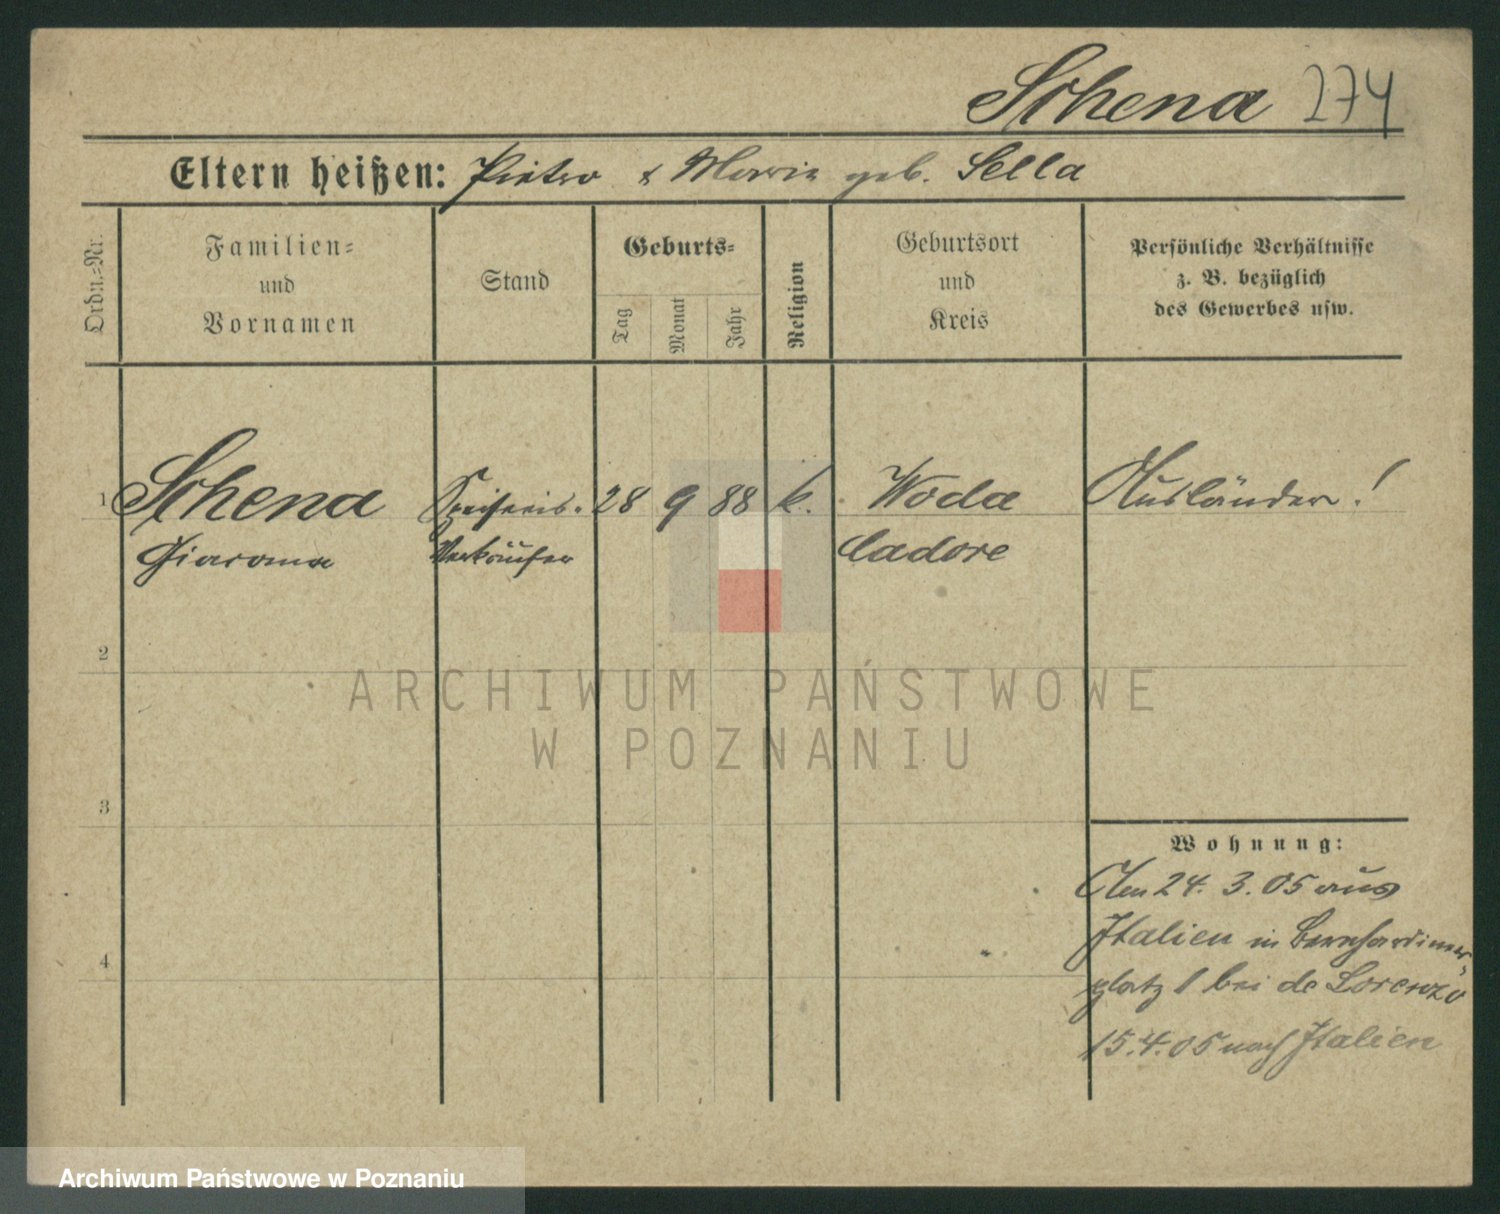 Schena 274
Eltern heißen: Pietro & Maria geb. Sella
Ordn.=Nr.
Familien=
und
Vornamen
Stand
Geburts=
Tag
Monat
Jahr
Religion
Geburtsort
und
Kreis
Persönliche Verhältnisse
z. B. bezüglich
des Gewerbes usw.
1 Schena Speiseeis- 28 9 88 k. Woda Ausländer!
Giacomo Verkäufer Cadore
2
3
4
Wohnung:
Am 24. 3. 05 aus
Italien in Bernhardiner-
platz 1 bei de Lorenzo
15.4.05 nach Italien
ARCHIWUM PAŃSTWOWE
W POZNANIU
Archiwum Państwowe w Poznaniu